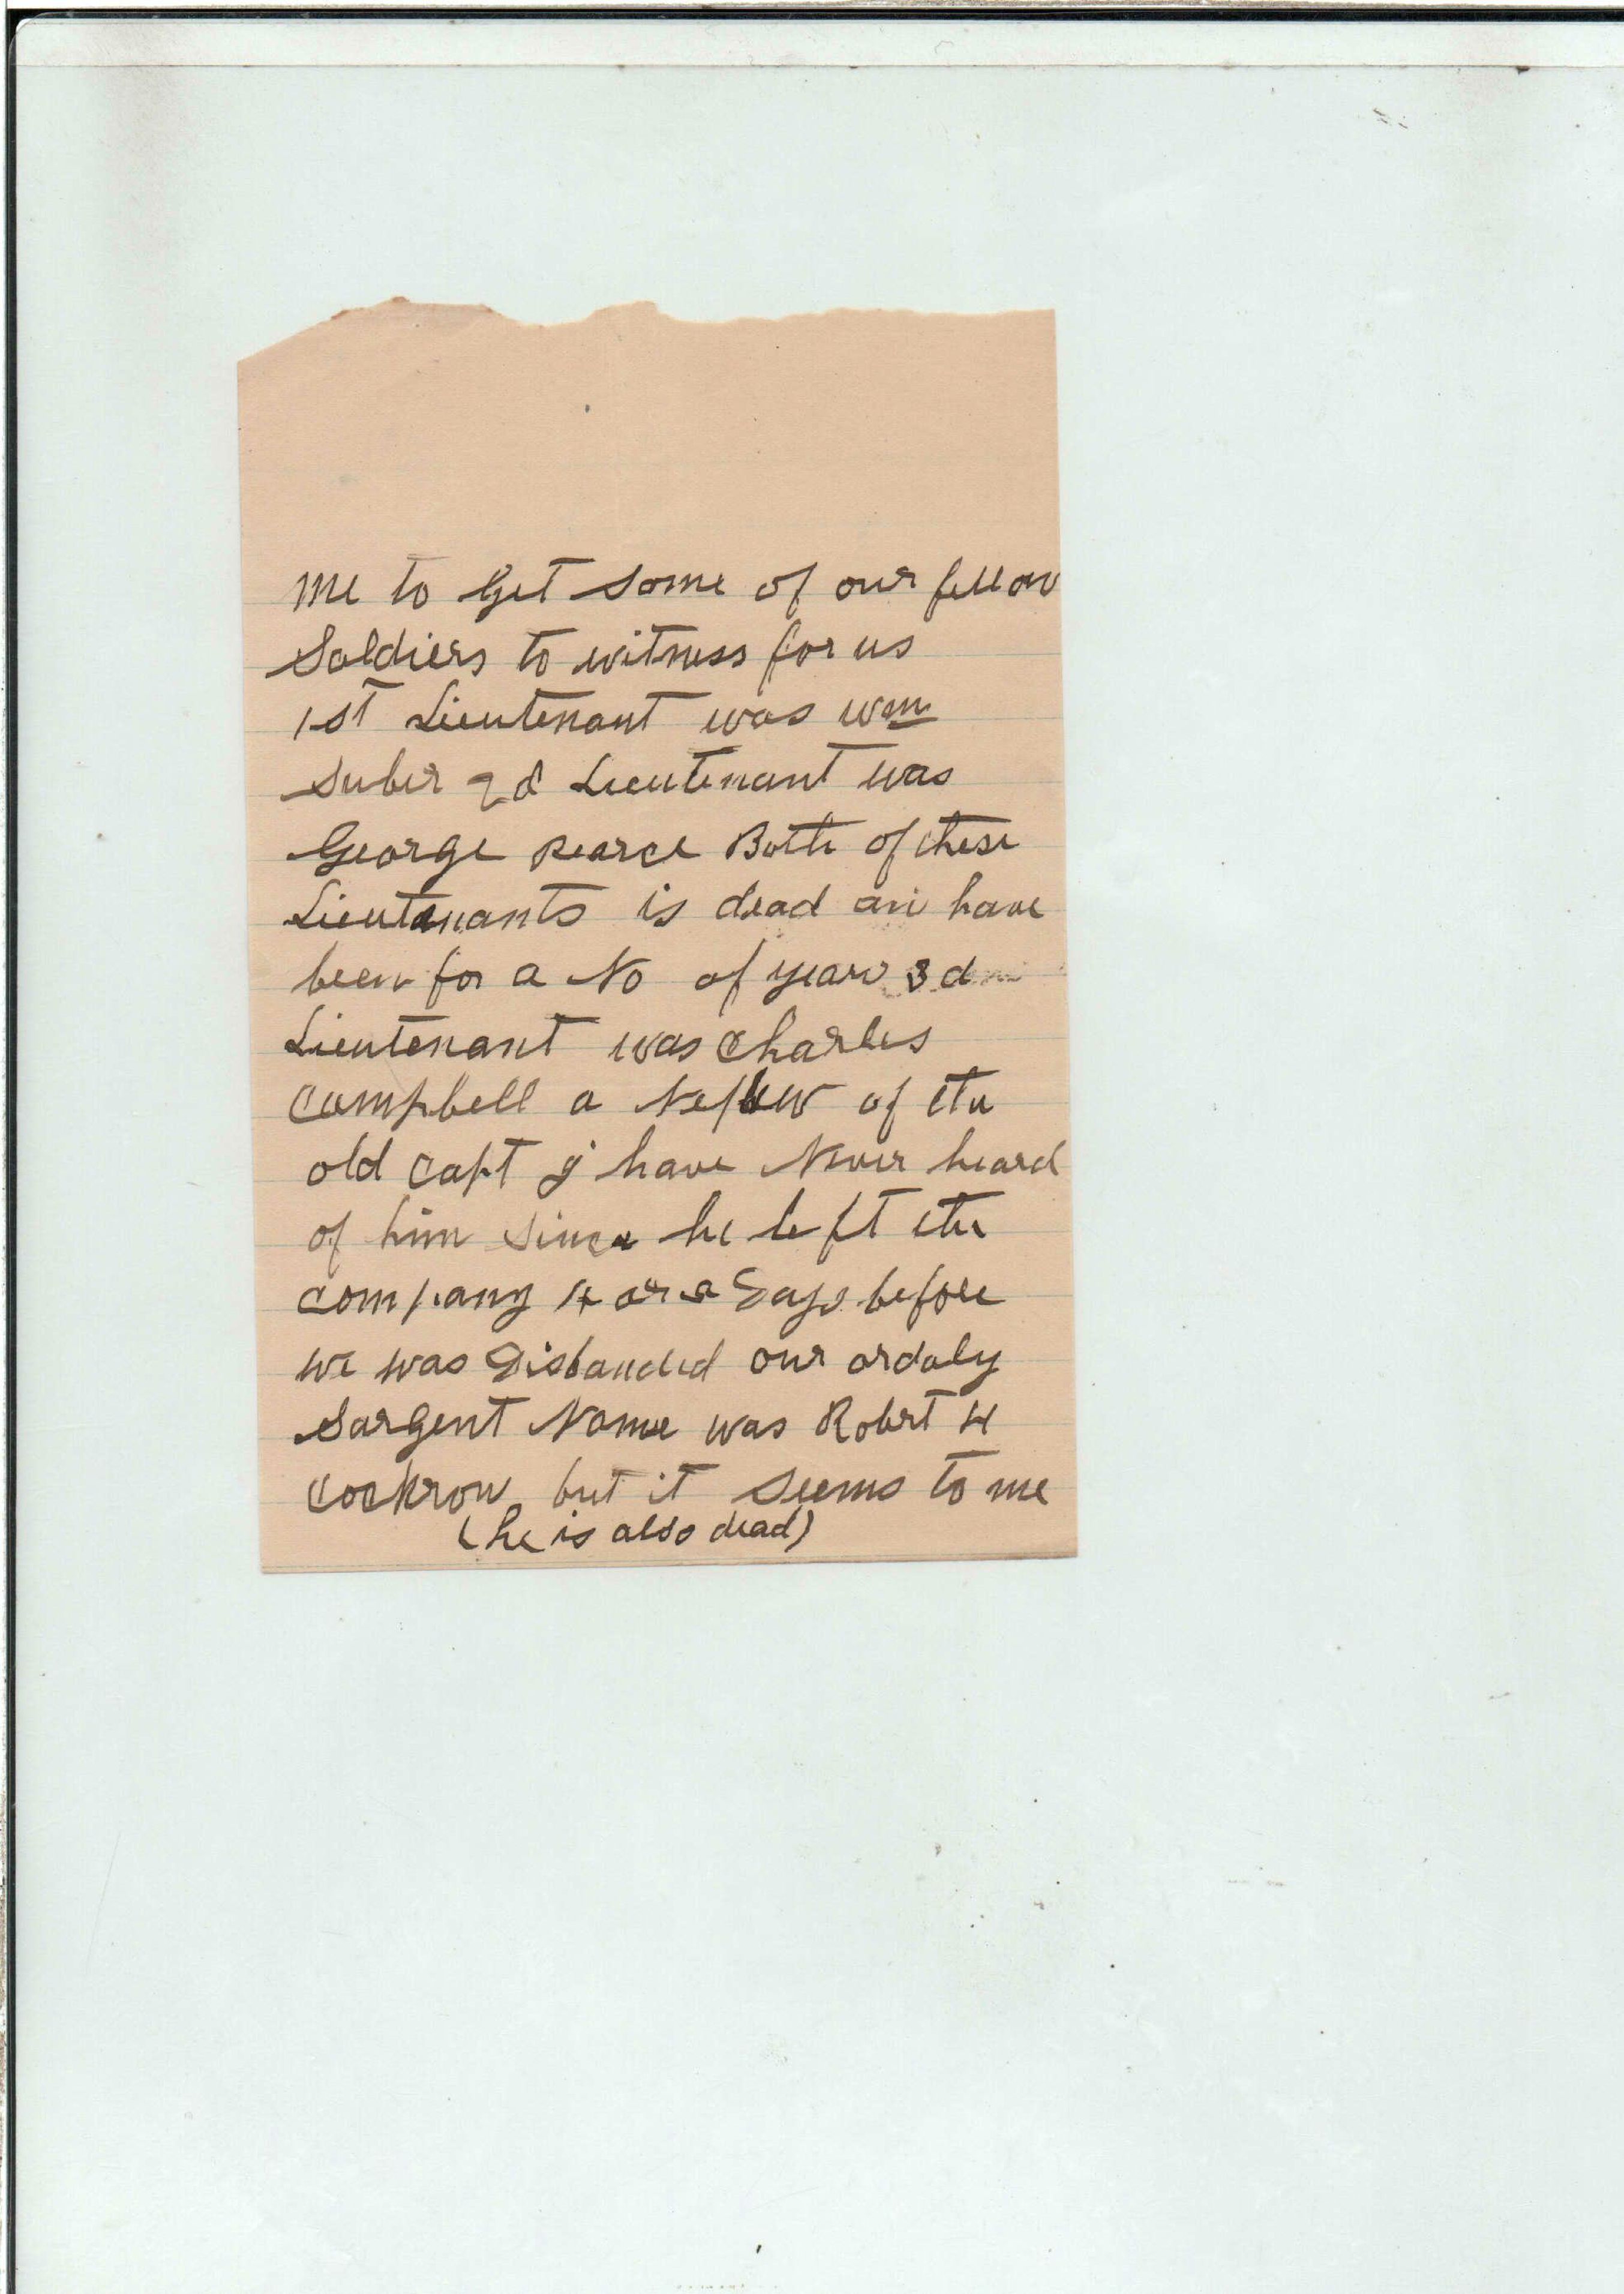 me to Get Some of our fellow
Soldiers to witness for us
1st Lieutenant was Wm
Suber 2d Lieutenant was
George Pearce Both of these
Lieutenants is dead an have
been for a No of years 3d
Lieutenant was Charles
Campbell a Nephew of the
old Capt I have Never heard
of him since he left the
company or Days before
we was Disbanded our ordaly
Sargent Name was Robert H
Cockrow but it seems to me
(he is also dead)